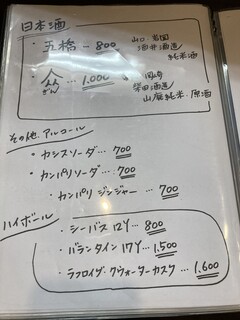 日本酒
・五橋 … 800 山口・岩国
酒井酒造
純米酒
… 1,000 岡崎
柴田酒造
山廃純米・原酒
その他 アルコール
・カシスソーダ … 700
・カンパリソーダ … 700
・カンパリ ジンジャー … 700
ハイボール
・シーバス 12Y … 800
・バランタイン 17Y … 1,500
・ラフロイグ・クウォーターカスク … 1,600